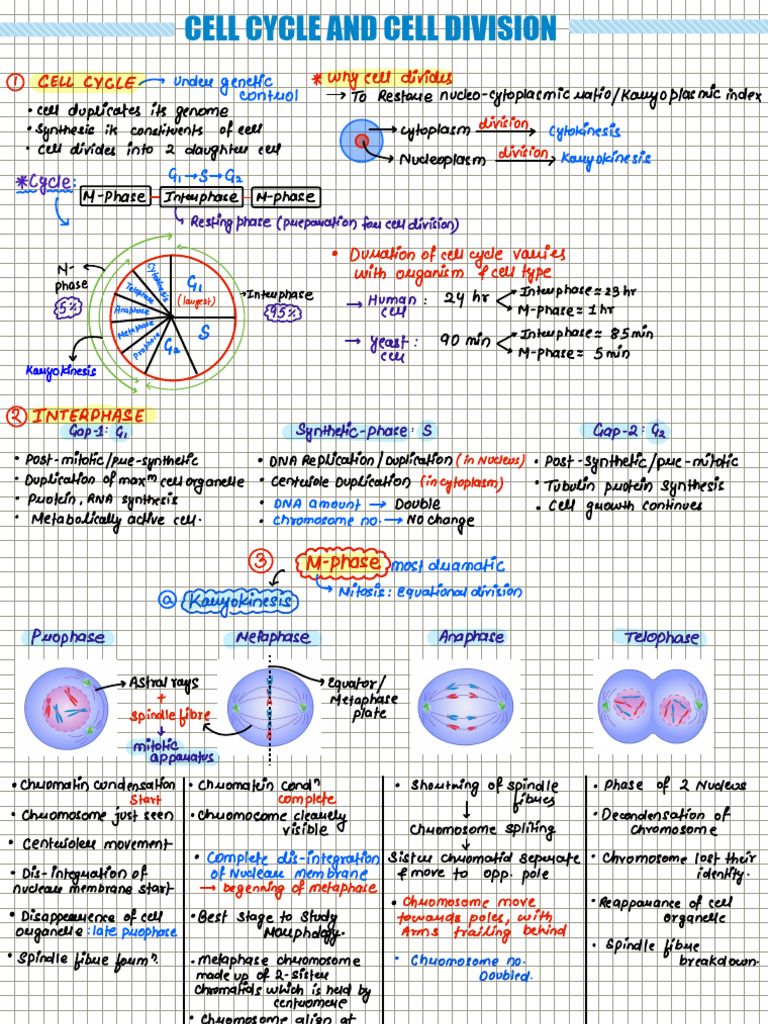 CELL CYCLE AND CELL DIVISION
① CELL CYCLE → Under genetic control
• cell duplicates its genome
• Synthesis it constituents of cell
• Cell divides into 2 daughter cell
* Why cell divides
→ To Restore nucleo-cytoplasmic ratio/Karyoplasmic index
cytoplasm division → Cytokinesis
Nucleoplasm division → Karyokinesis
*Cycle:
G₁→S→G₂
M-Phase Interphase M-phase
Resting phase (preparation for cell division)
M-phase
5%
Karyokinesis
Cytokinesis
Telophase
Anaphase
Metaphase
Prophase
G₁ (largest)
S
G₂
Interphase
95%
• Duration of cell cycle varies
with organism & cell type
→ Human cell : 24 hr
Interphase = 23 hr
M-Phase = 1 hr
→ yeast cell : 90 min
Interphase = 85 min
M-Phase = 5 min
② INTERPHASE
Gap-1: G₁
• Post-mitotic/pre-synthetic
• Duplication of maxᵐ cell organelle
• Protein, RNA synthesis
• Metabolically active cell.
Synthetic-phase: S
• DNA Replication/Duplication (in Nucleus)
• Centriole Duplication (in cytoplasm)
• DNA amount → Double
• chromosome no. → No change
Gap-2: G₂
• Post-synthetic/pre-mitotic
• Tubulin protein synthesis
• Cell growth continues
③ M-phase most dramatic
Mitosis: Equational division
ⓐ Karyokinesis
Prophase
Metaphase
Anaphase
Telophase
Astral rays
+
spindle fibre
mitotic
apparatus
Equator/
Metaphase
plate
• Chromatin condensation
Start
• Chromosome just seen
• Centriolen movement
• Dis-integration of
nuclear membrane start
• Disappearence of cell
organelle: late prophase
• Spindle fibre formⁿ.
• Chromatein condⁿ
complete
• Chromocome clearly
visible
• Complete dis-integration
of Nuclear membrane
→ begenning of metaphase
• Best stage to study
Morphology.
• metaphase chromosome
made up of 2-Sister
Chromatids which is held by
centromere
• Chromosome align at
• Shortning of spindle
fibres
Chromosome spliting
Sister Chromatid seperate
& move to opp. pole
• Chromosome move
towards poles, with
Arms trailing behind
• Chromosome no.
Doubled.
• Phase of 2 Nucleus
• Decondensation of
Chromosome
• Chromosome lost their
identity.
• Reappearance of cell
organelle
• Spindle fibre
breakdown.